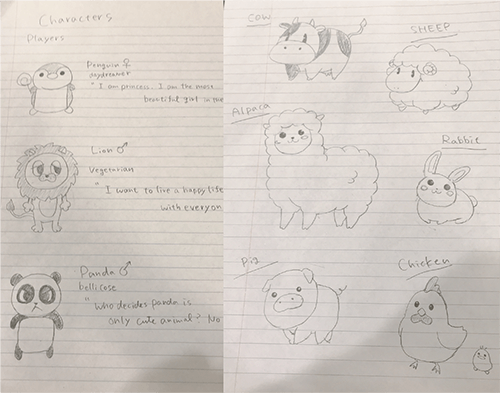 Characters
Players
Penguin ♀
daydreamer
" I am princess. I am the most
beautiful girl in the
Lion ♂
Vegetarian
" I want to live a happy life
with everyon
Panda ♂
bellicose
" Who decides panda is
only cute animal? No
COW
SHEEP
Alpaca
Rabbit
Pig
Chicken